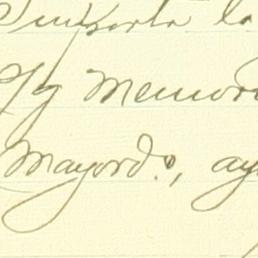 Importa la
Memor
Mayord.º, ay